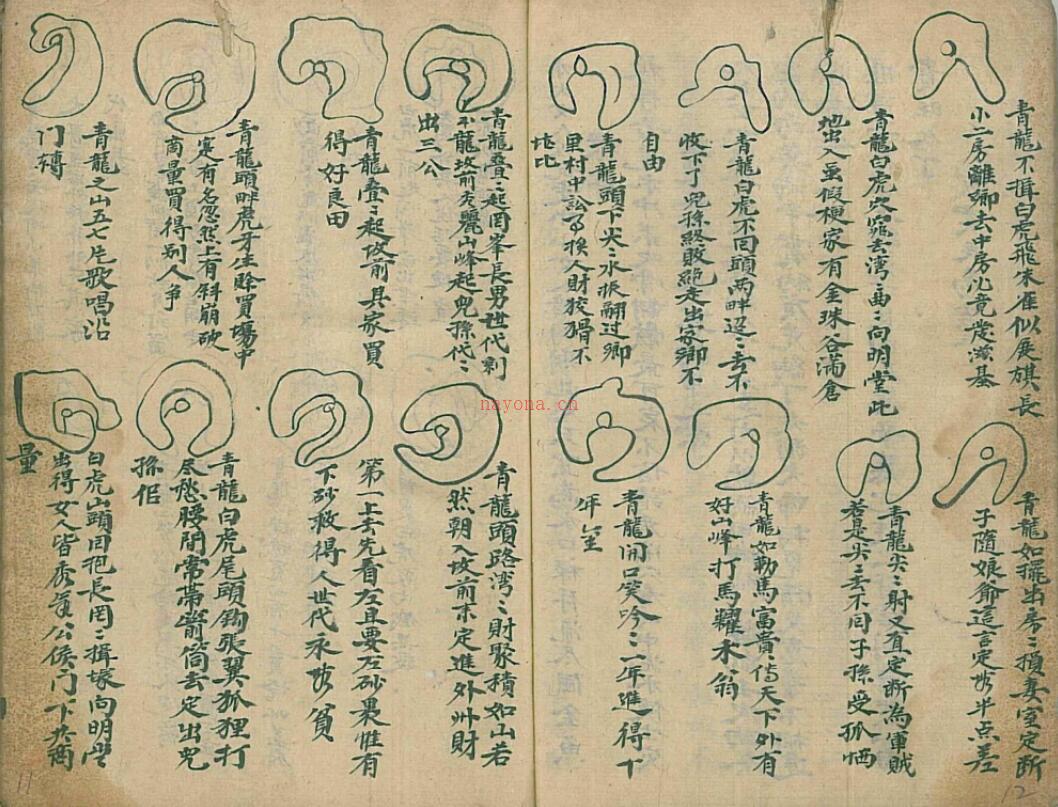 青龍不揖白虎飛朱雀似展旗長
小二房離鄉去中房必竟歲基
青龍白虎穴窩去湾二曲二向明堂此
地出入無假梗家有金珠谷滿倉
青龍白虎不回頭两畔迢二去不
收下了兒孫終敗絕走出家鄉不
自由
青龍頭下尖二水振翻過鄉
里村中訟人財狡猾不
比
青龍叠二起罔峯長男世代
不龍坟前山峰起兒孫代二
出三公
青龍叠二起坟前具家買
得好良田
青龍頭畔虎牙生賒買場中
定有名忽然上有斜崩破
商量買得别人争
青龍之山五七片歌唱沿
门轉
青龍如擺出房二損妻室定断
子隨娘爺這言定半点差
青龍尖二射又直定断為軍賊
若是尖二去不同子孫受孤恓
青龍如勒馬富貴傳天下外有
好山峰打馬耀禾翁
青龍開口笑吟二一年進得十
年

青龍頭路湾二財聚積如山若
然朝入坟前来定進外州財
第一上手先看左且要左砂裹惟有
下砂救得人世代永貧
青龍白虎尾頭鈎張翼狐狸打
尽愁腰間常帶箭筒去定出兒
孫

白虎山頭回抱長罔二揖塚向明堂
出得女人皆秀公侯门下求商
量
nayona.cn
11
12